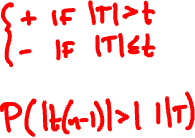 { + IF |T|>t
- IF |T|≤t
P(|t(n-1)|>| |T|)